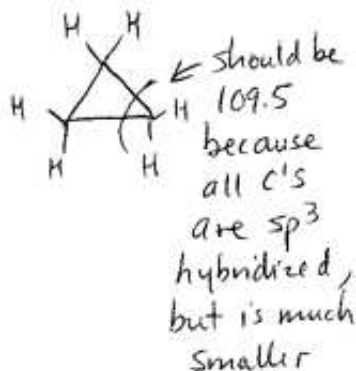 H H
should be
H H
109.5
H H
because
all C's
are sp³
hybridized,
but is much
smaller